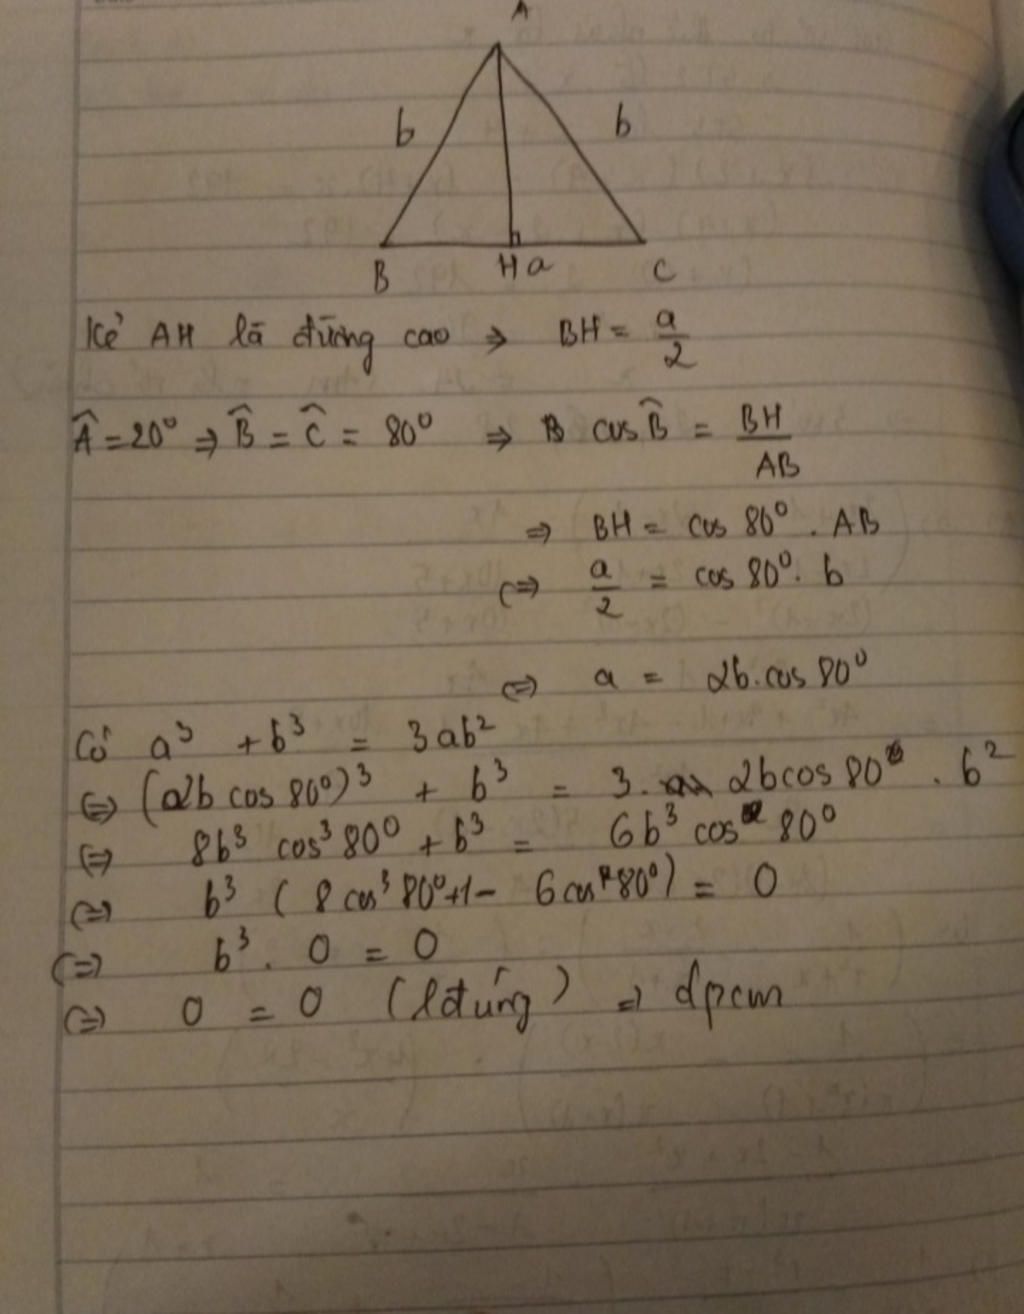 A
b b
B H a C
Kẻ AH là đường cao ⇒ BH = a/2
Â = 20° ⇒ B̂ = Ĉ = 80° ⇒ cos B̂ = BH/AB
⇒ BH = cos 80° . AB
⇔ a/2 = cos 80° . b
⇔ a = 2b.cos 80°
Có a³ + b³ = 3ab²
⇔ (2b cos 80°)³ + b³ = 3. 2bcos 80° . b²
⇔ 8b³ cos³ 80° + b³ = 6b³ cos 80°
⇔ b³ ( 8 cos³ 80° +1 - 6 cos 80° ) = 0
⇔ b³ . 0 = 0
⇔ 0 = 0 (lđúng) ⇒ đpcm